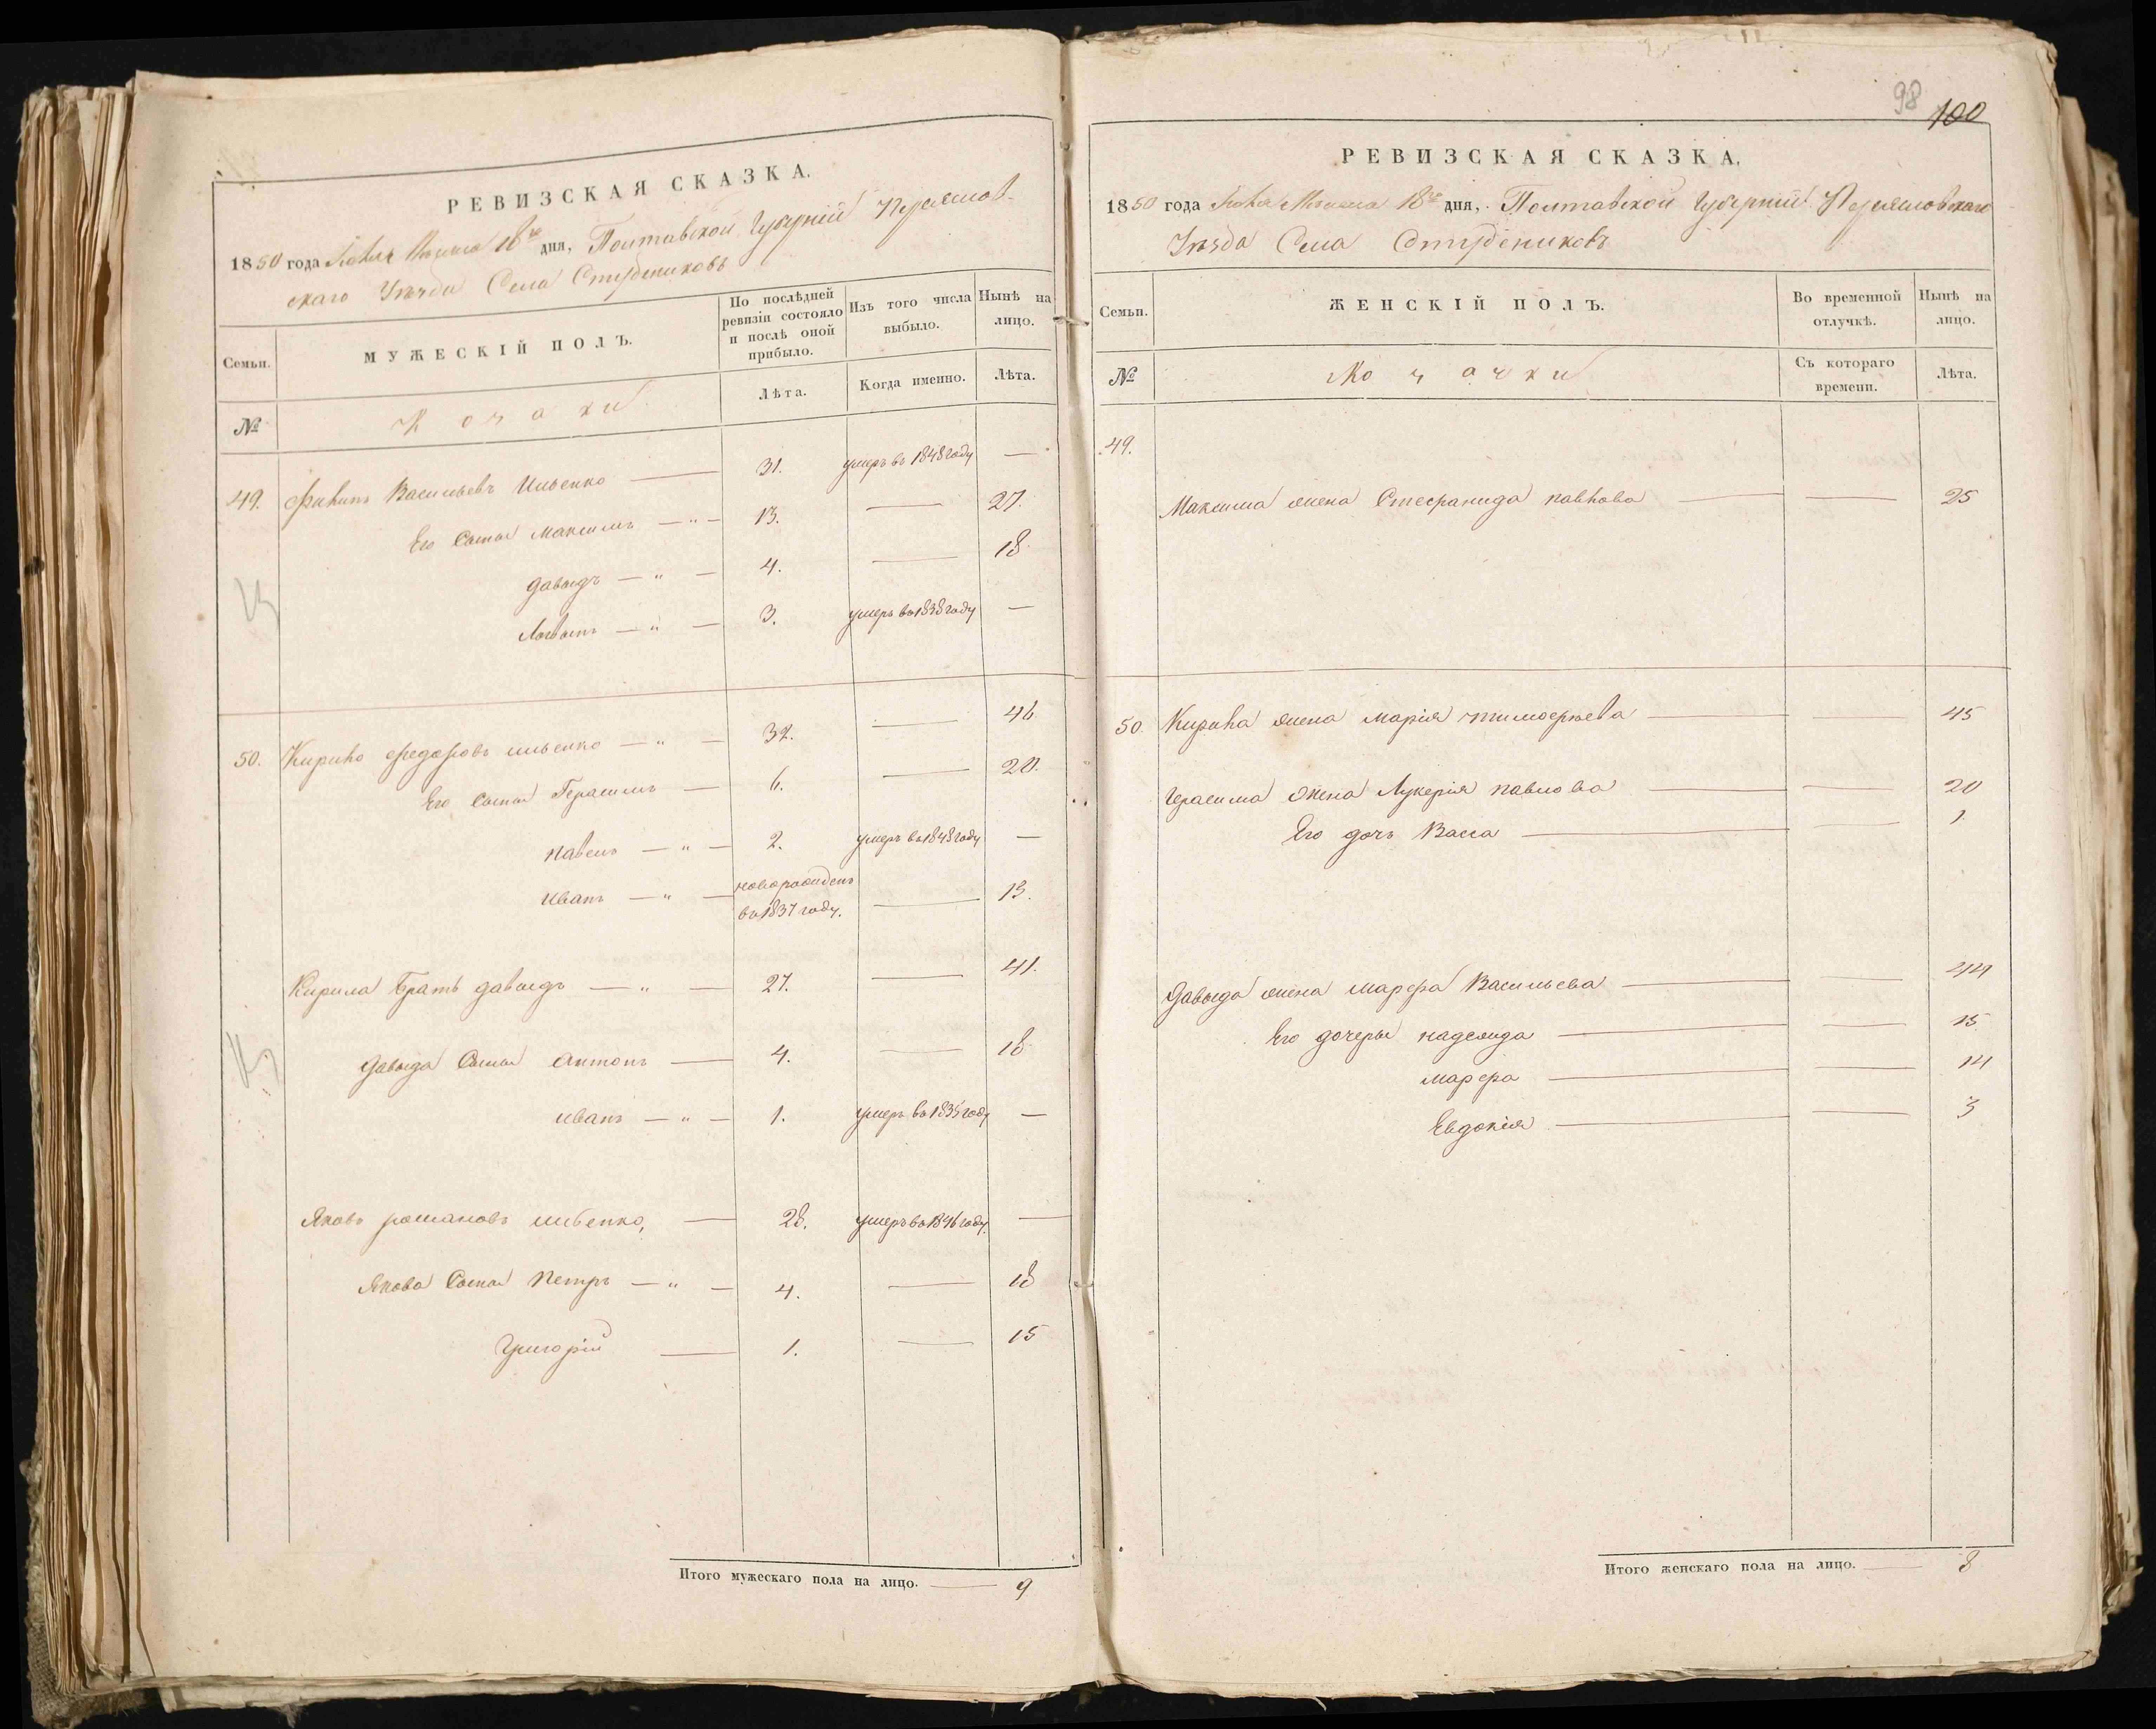 РЕВИЗСКАЯ СКАЗКА.
1850 года Іюня Мѣсяца 18го дня, Полтавской Губерніи Переяслов-
скаго Уѣзда Села Студениковъ
Семьи.
МУЖЕСКІЙ ПОЛЪ.
По послѣдней ревизіи состояло и послѣ оной прибыло.
Изъ того числа выбыло.
Нынѣ на лицо.
№
Козаки
Лѣта.
Когда именно.
Лѣта.
49. Филипъ Васильевъ Ильенко — 31. умеръ въ 1848 году —
Его Сыны Максимъ — „ — 13. — 27.
Давыдъ — „ — 4. — 18
Логвинъ — „ — 3. умеръ въ 1838 году —
50. Кирило Федоровъ Ильенко — „ — 32. — 46
Его Сыны Герасимъ — 6. — 20.
Павелъ — „ — 2. умеръ въ 1848 году —
Иванъ — „ — новорожденъ въ 1837 году. — 13.
Кирила Братъ Давыдъ — „ — 27. — 41.
Давыда Сыны Антонъ — 4. — 18
Иванъ — „ — 1. умеръ въ 1835 году —
Яковъ Романовъ Ильенко, — 28. умеръ въ 1846 году. —
Якова Сыны Петръ — „ — 4. — 18
Григорій — 1. — 15
Итого мужескаго пола на лицо. — 9
98
100
РЕВИЗСКАЯ СКАЗКА.
1850 года Іюня Мѣсяца 18го дня, Полтавской Губерніи Переясловскаго
Уѣзда Села Студениковъ
Семьи.
ЖЕНСКІЙ ПОЛЪ.
Во временной отлучкѣ.
Нынѣ на лицо.
№
Козачки
Съ котораго времени.
Лѣта.
49.
Максима жена Стефанида Павлова — — 25
50. Кирила жена Марія Тимофѣева — — 45
Герасима жена Лукерія Павлова — — 20
Его дочь Васса — — 1
Давыда жена Марфа Васильева — — 44
Его дочеры Надежда — — 15
Марфа — — 14
Евдокія — — 3
Итого женскаго пола на лицо. — 8